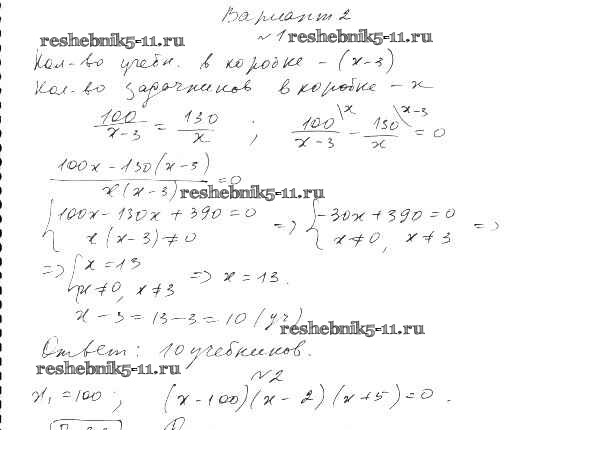 Вариант 2
reshebnik5-11.ru
№1 reshebnik5-11.ru
Кол-во учебн. в коробке - (x-3)
Кол-во задачников в коробке - x
100/(x-3) = 130/x ; 100\x/(x-3) - 130\x-3/x = 0
(100x - 130(x-3))/(x(x-3)) = 0
reshebnik5-11.ru
{100x - 130x + 390 = 0 => {-30x + 390 = 0 =>
x(x-3) ≠ 0 x ≠ 0, x ≠ 3
=> {x = 13 => x = 13.
x ≠ 0, x ≠ 3
x - 3 = 13 - 3 = 10 (уч)
reshebnik5-11.ru
Ответ: 10 учебников.
reshebnik5-11.ru
№2
x₁ = 100 ; (x-100)(x-2)(x+5) = 0.